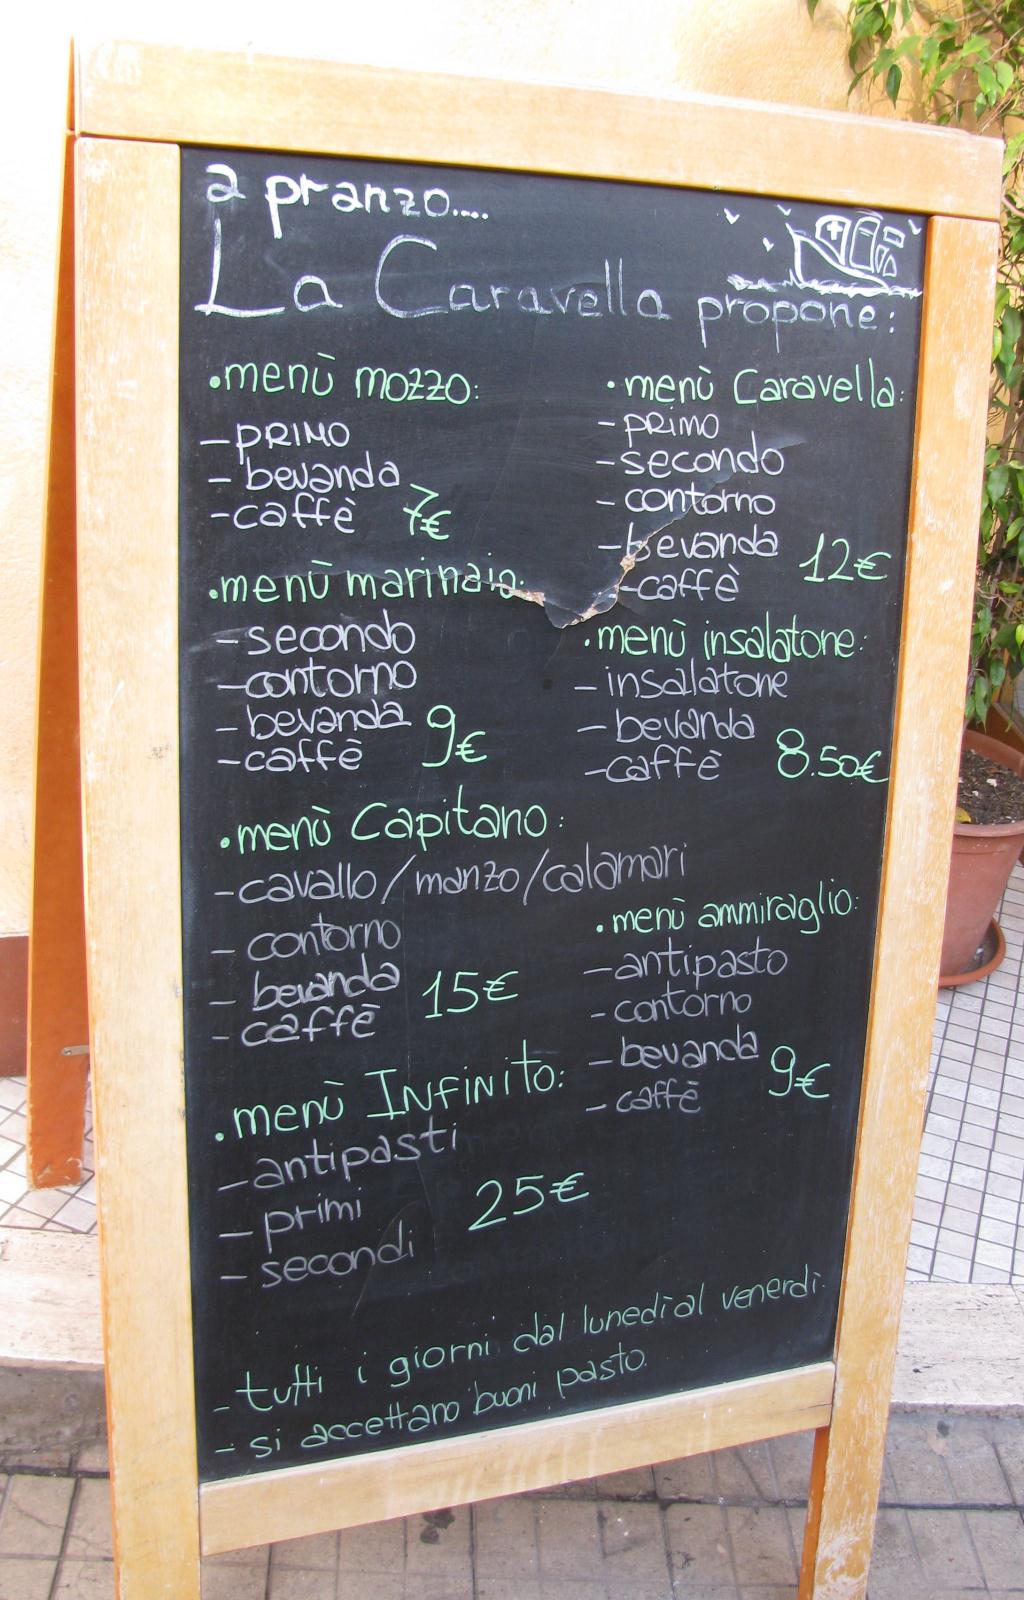 a pranzo....
La Caravella propone:
•menù mozzo:
-PRIMO
-bevanda
-caffè 7€
•menù marinaio:
-secondo
-contorno
-bevanda 9€
-caffè
•menù Capitano:
-cavallo/manzo/calamari
-contorno
-bevanda 15€
-caffè
•menù INFINITO:
-antipasti
-primi 25€
-secondi
•menù Caravella:
-PRIMO
-secondo
-contorno
-bevanda 12€
-caffè
•menù insalatone:
-insalatone
-bevanda
-caffè 8.50€
•menù ammiraglio:
-antipasto
-contorno
-bevanda 9€
-caffè
-tutti i giorni dal lunedì al venerdì.
-si accettano buoni pasto.